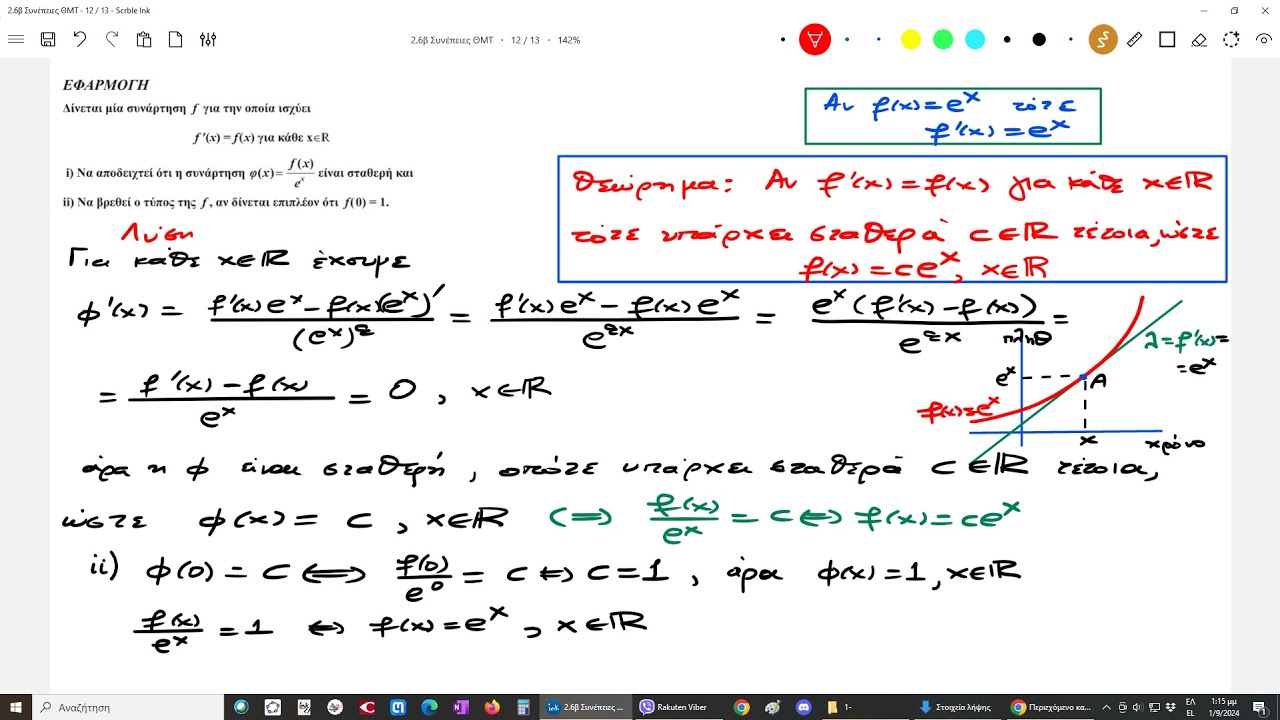 2.6β Συνέπειες ΘΜΤ - 12 / 13 - Scrble Ink
2.6β Συνέπειες ΘΜΤ • 12 / 13 • 142%
ΕΦΑΡΜΟΓΗ
Δίνεται μία συνάρτηση f για την οποία ισχύει
f ′(x) = f(x) για κάθε x∈R
i) Να αποδειχτεί ότι η συνάρτηση φ(x)= f(x)/e^x είναι σταθερή και
ii) Να βρεθεί ο τύπος της f, αν δίνεται επιπλέον ότι f(0) = 1.
Αν f(x)=e^x τότε
f'(x)=e^x
Θεώρημα: Αν f'(x)=f(x) για κάθε x∈ℝ
τότε υπάρχει σταθερά c∈ℝ τέτοια, ώστε
f(x)=ce^x, x∈ℝ
Λύση
Για κάθε x∈ℝ έχουμε
φ'(x) = (f'(x)e^x-f(x)(e^x)')/(e^x)^2 = (f'(x)e^x-f(x)e^x)/e^{2x} = e^x(f'(x)-f(x))/e^{2x} =
= (f'(x)-f(x))/e^x = 0, x∈ℝ
πληθ
λ=f'(x)=
=e^x
e^x
A
f(x)=e^x
x
χρόνο
άρα η φ είναι σταθερή, οπότε υπάρχει σταθερά c∈ℝ τέτοια,
ώστε φ(x)=c, x∈ℝ ⇔ f(x)/e^x = c ⇔ f(x)=ce^x
ii) φ(0)=c ⇔ f(0)/e^0 = c ⇔ c=1, άρα φ(x)=1, x∈ℝ
f(x)/e^x = 1 ⇔ f(x)=e^x, x∈ℝ
Αναζήτηση
2.6β Συνέπειες ...
Rakuten Viber
1-
Στοιχεία λήψης
Περιεχόμενο κα...
ΕΛ
EL
1:15 μμ
1/9/2024